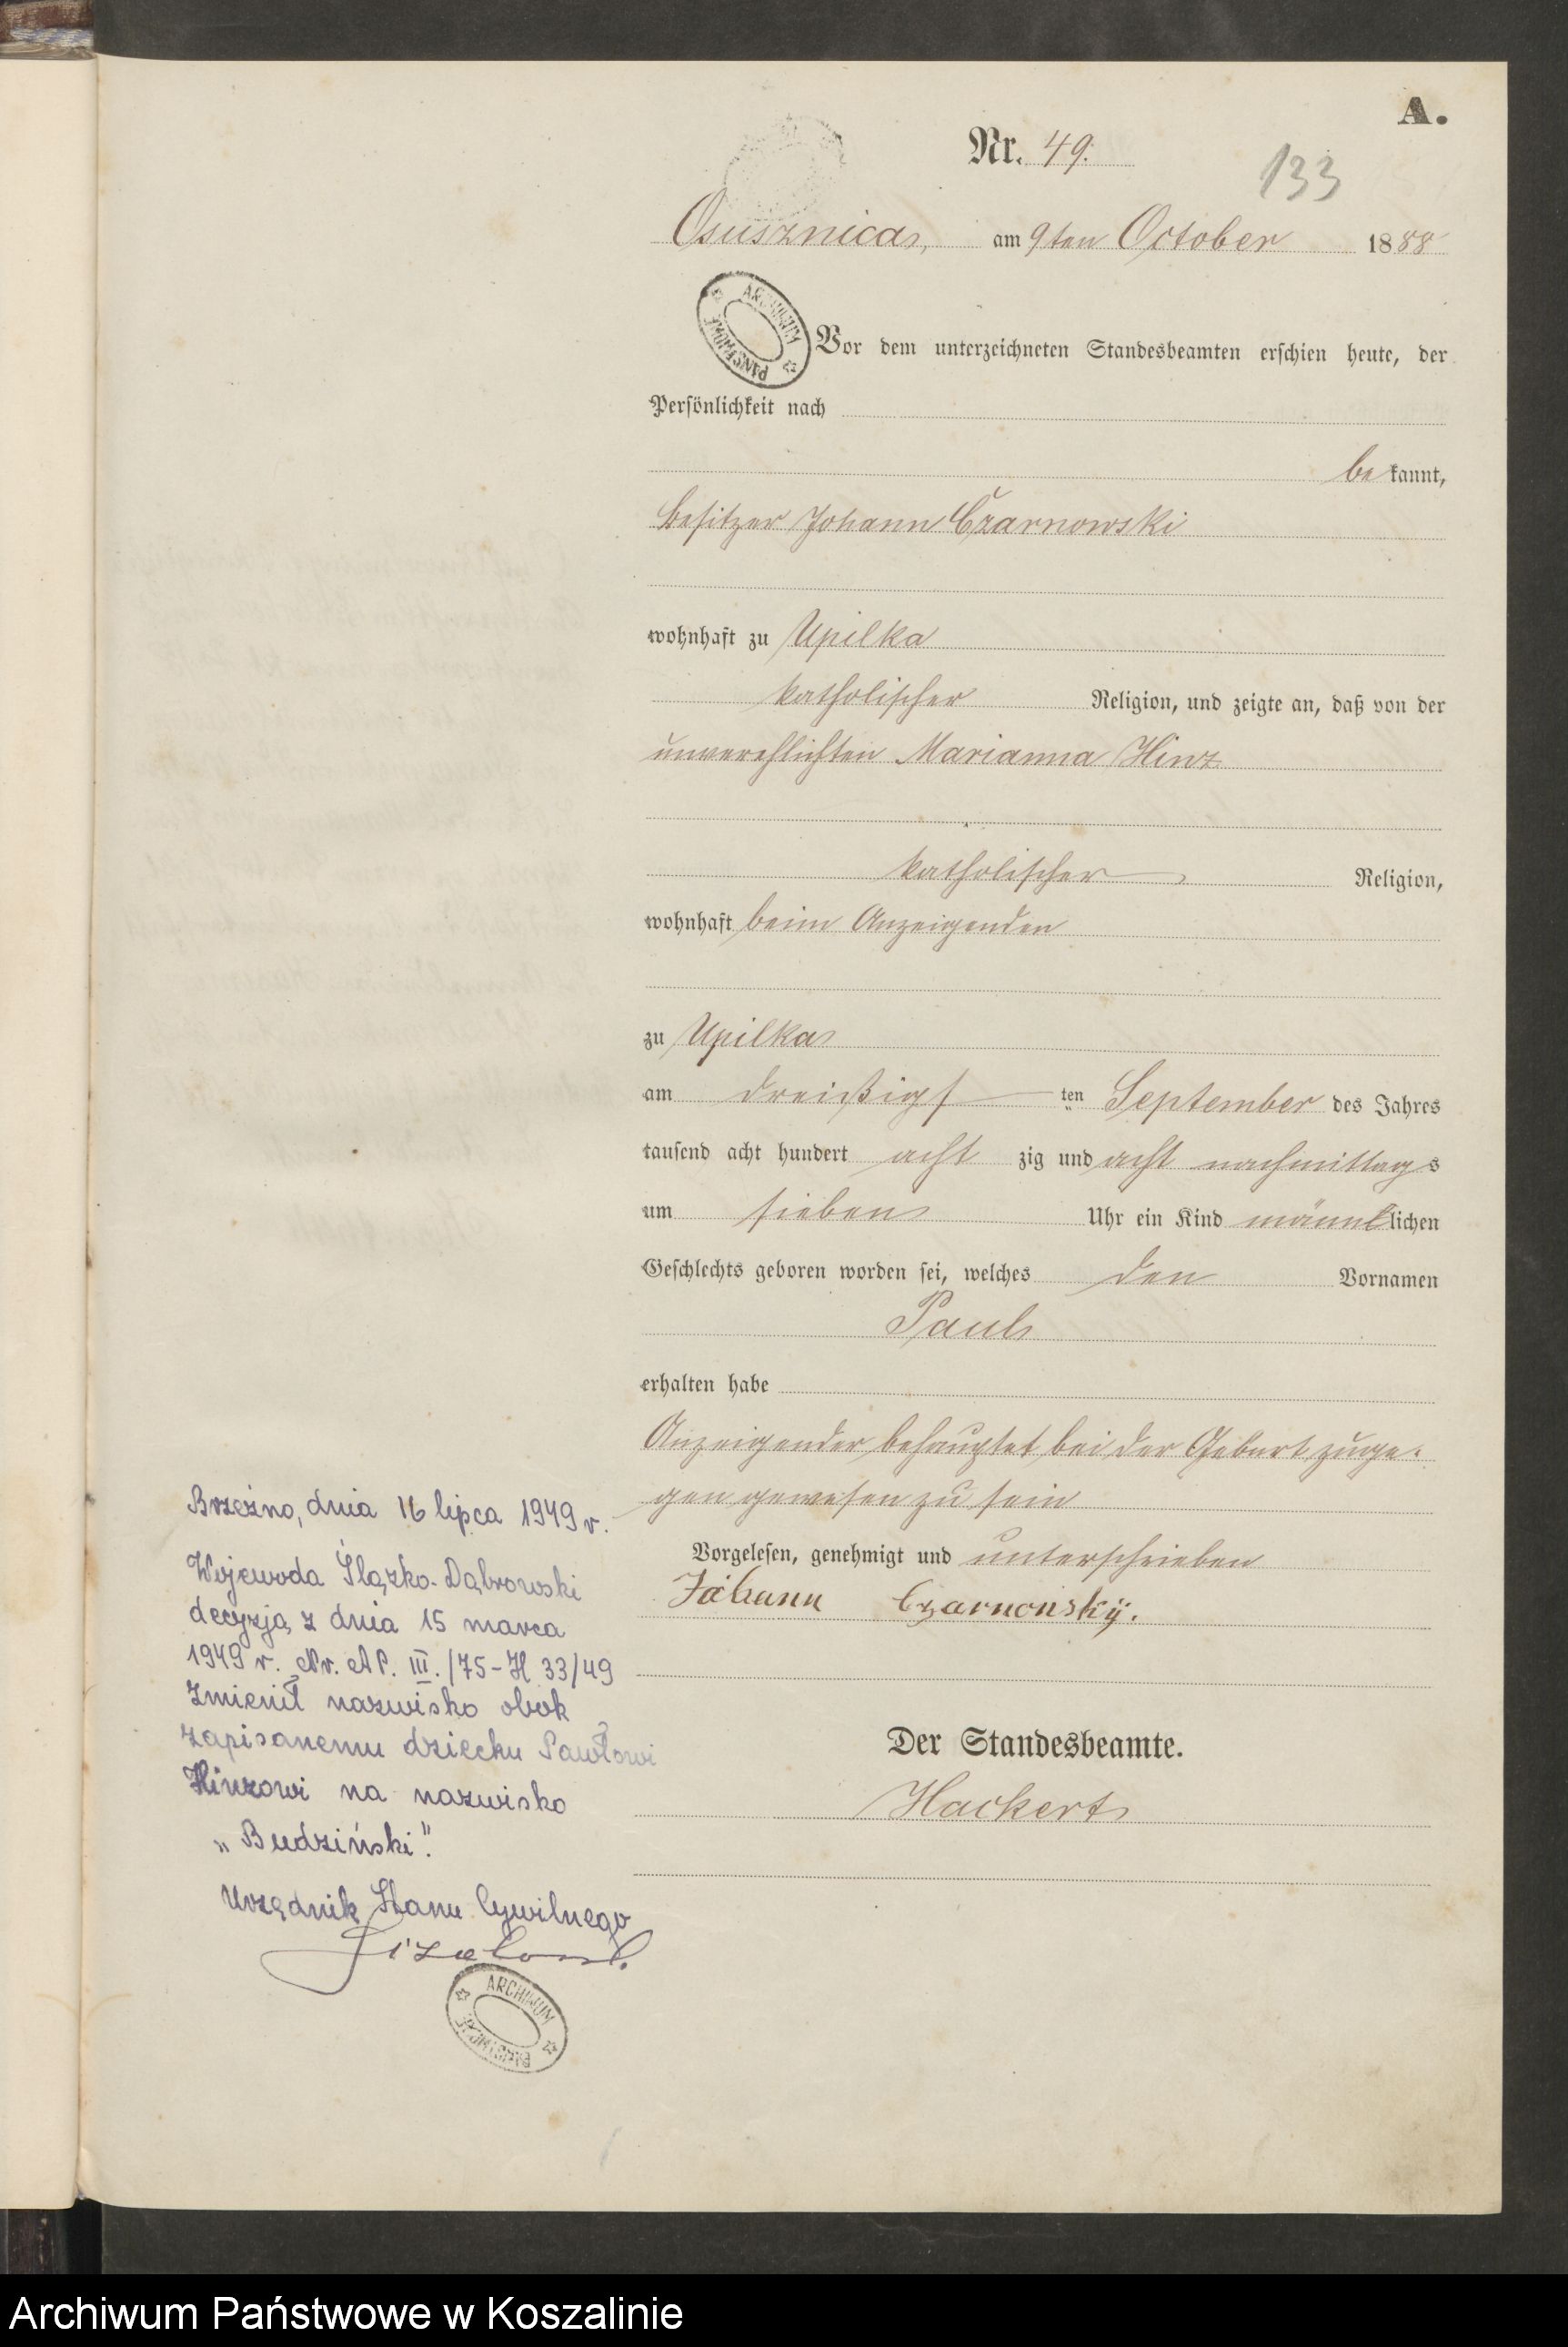 A.
Nr. 49.
133
Osusznica, am 9ten October 1888
ARCHIWUM PAŃSTWOWE
Vor dem unterzeichneten Standesbeamten erschien heute, der
Persönlichkeit nach
bekannt,
Besitzer Johann Czarnowski
wohnhaft zu Upilka
katholischer Religion, und zeigte an, daß von der
unverehlichten Marianna Hinz
katholischer Religion,
wohnhaft beim Anzeigenden
zu Upilka
am dreißigsten September des Jahres
tausend acht hundert achtzig und acht nachmittags
um sieben Uhr ein Kind männlichen
Geschlechts geboren worden sei, welches den Vornamen
Paul
erhalten habe
Anzeigender behauptet bei der Geburt zuge-
gen gewesen zu sein
Vorgelesen, genehmigt und unterschrieben
Johann Czarnonskÿ.
Der Standesbeamte.
Hackert
Brzeźno, dnia 16 lipca 1949 r.
Wojewoda Śląsko-Dąbrowski
decyzją z dnia 15 marca
1949 r. Nr. AP. III./75-H 33/49
zmienił nazwisko obok
zapisanemu dziecku Pawłowi
Hinzowi na nazwisko
„Budziński".
Urzędnik Stanu Cywilnego
ARCHIWUM PAŃSTWOWE
Archiwum Państwowe w Koszalinie